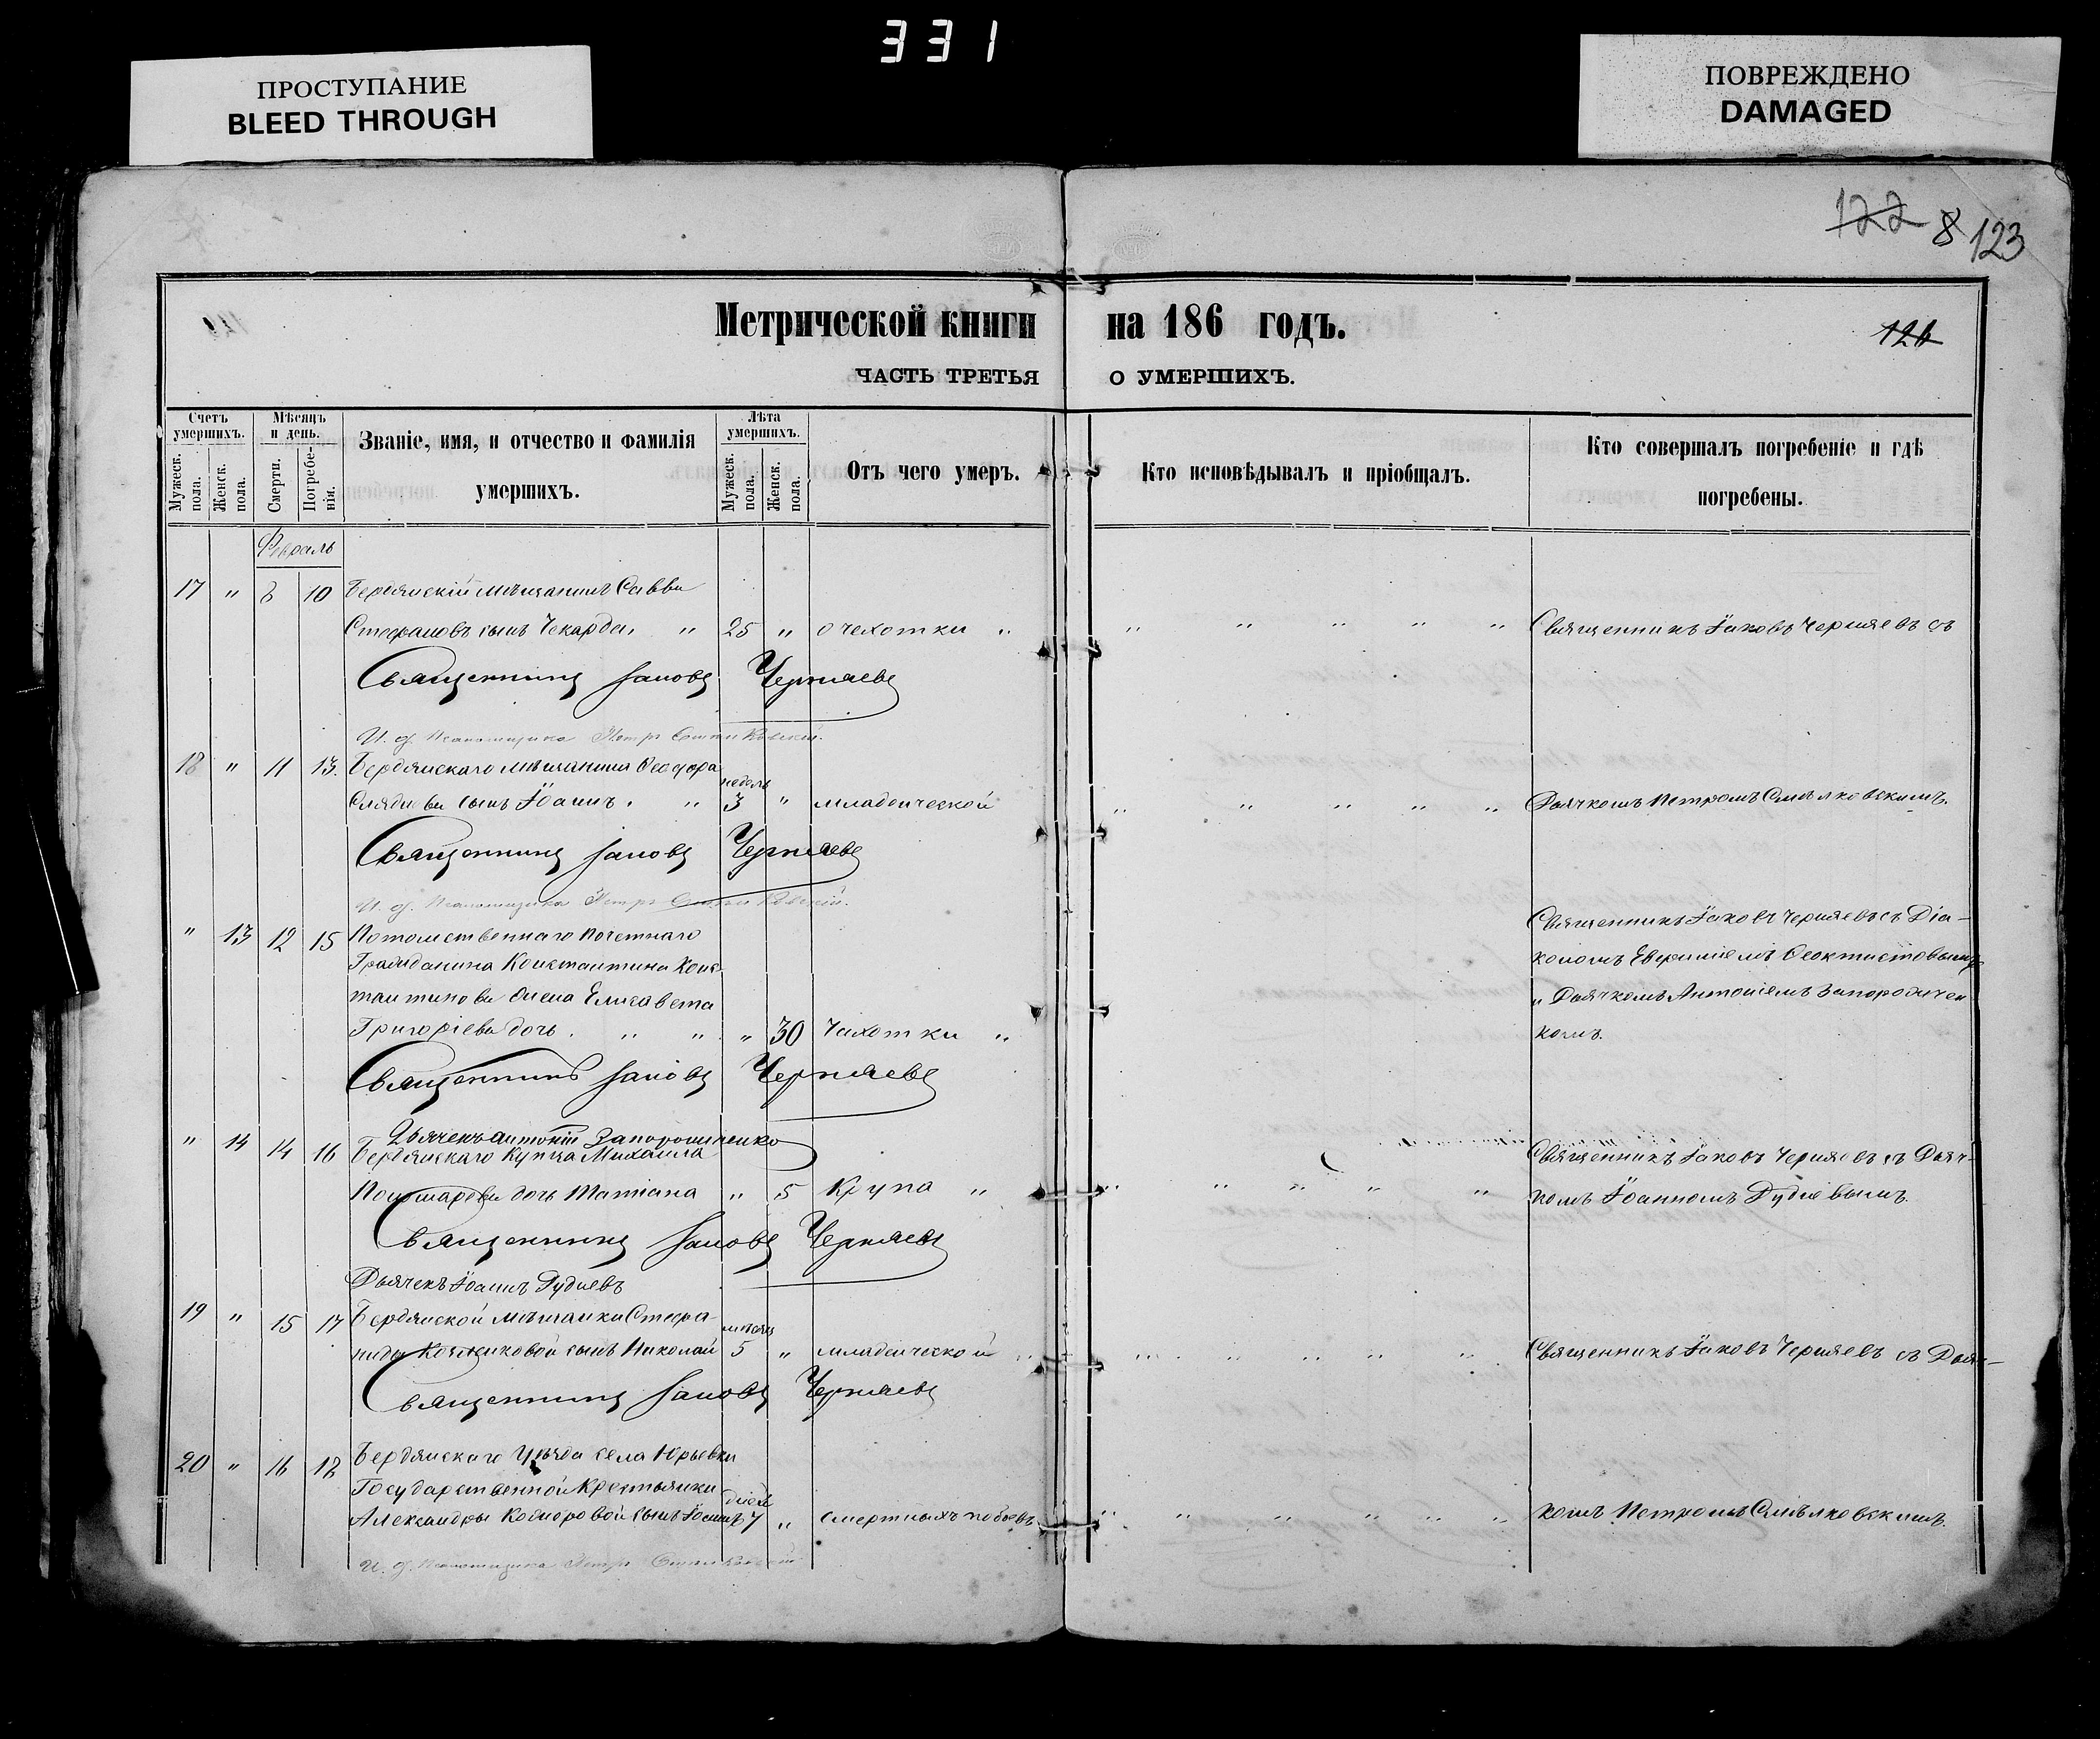 331
ПРОСТУПАНИЕ
BLEED THROUGH
ПОВРЕЖДЕНО
DAMAGED
122 8 123
Метрической книги на 186 годъ.
126
ЧАСТЬ ТРЕТЬЯ О УМЕРШИХЪ.
Счетъ умершихъ.
Мужеск. пола.
Женск. пола.
Мѣсяцъ и день.
Смерти.
Погребенія.
Званіе, имя, и отчество и фамилія умершихъ.
Лѣта умершихъ.
Мужеск. пола.
Женск. пола.
Отъ чего умеръ.
Кто исповѣдывалъ и пріобщалъ.
Кто совершалъ погребеніе и гдѣ погребены.
Февраль
17 " 8 10 Бердянскій мѣщанинъ Савва
Стефановъ сынъ Чекарда, " 25 " о чехотки " Священникъ Іаковъ Черняевъ съ
Священникъ Іаковъ Черняевъ
И. д. Псаломщика Петръ
18 " 11 13. Бердянскаго мѣщанина Ѳеодора
недѣль
сынъ Іоаннъ. " 3 " младенческой Дьячкомъ Петромъ Смѣлковскимъ.
Священникъ Іаковъ Черняевъ
И. д. Псаломщика Петръ
" 13 12 15 Потомственнаго почетнаго Священникъ Іаковъ Черняевъ съ Діа-
Гражданина Константина Конс- кономъ Евфиміемъ Ѳеоктистовымъ
тантинова Елисавета " Дьячкомъ Антоніемъ Запорожчен
Григоріева дочь. " " " 30 Чахотки " комъ.
Священникъ Іаковъ Черняевъ
Дьячекъ Антоній Запорошченко
" 14 14 16 Бердянскаго Купца Михаила Священникъ Іаковъ Черняевъ съ Дьяч-
Пономарева дочь Татіана " 5 Крупа " комъ Іоанномъ Гудіевымъ.
Священникъ Іаковъ Черняевъ
Дьячекъ Іоаннъ Гудіевъ
19 " 15 17 Бердянской мѣщанки Стефа-
мѣсяц
ниды сынъ Николай 5 " младенческой Священникъ Іаковъ Черняевъ съ Дьяч-
Священникъ Іаковъ Черняевъ
20 " 16 18 Бердянскаго Уѣзда села Юрьевки
Государственной Крестьянки
дней
Александры сынъ Іоаннъ 7 " смертныхъ побоевъ комъ Петромъ Смѣлковскимъ.
И. д. Псаломщика Петръ